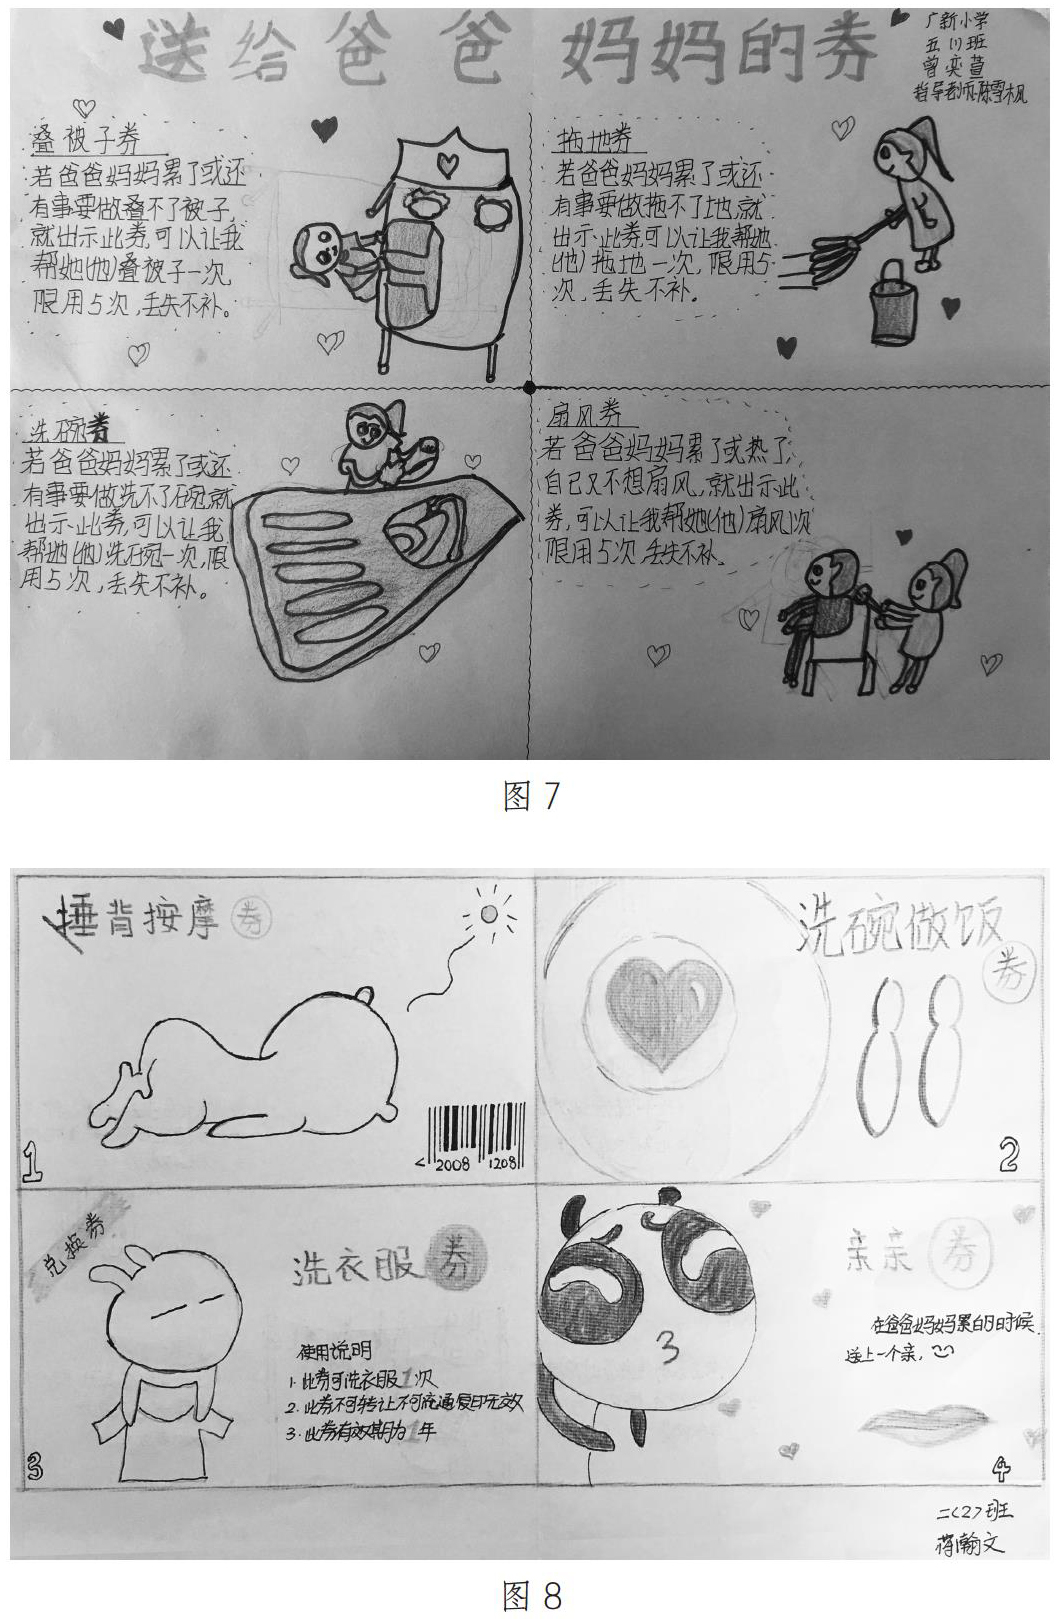 送给爸爸妈妈的券
广新小学
五(1)班
曾奕萱
指导老师:陈雪枫
叠被子券
若爸爸妈妈累了或还
有事要做叠不了被子,
就出示此券,可以让我
帮她(他)叠被子一次,
限用5次,丢失不补。
拖地券
若爸爸妈妈累了或还
有事要做拖不了地,就
出示此券,可以让我帮她
(他)拖地一次,限用5
次,丢失不补。
洗碗券
若爸爸妈妈累了或还
有事要做洗不了碗,就
出示此券,可以让我
帮她(他)洗碗一次,限
用5次,丢失不补。
扇风券
若爸爸妈妈累了或热了,
自己又不想扇风,就出示此
券,可以让我帮她(他)扇风1次
限用5次,丢失不补。
图 7
捶背按摩 券
< 2008 1208
1
洗碗做饭
券
2
兑换券
洗衣服 券
使用说明
1. 此券可洗衣服1次
2. 此券不可转让不可流通复印无效
3. 此券有效期为1年
3
亲亲 券
在爸爸妈妈累的时候,
送上一个亲,
3
4
二<2>班
蒋瀚文
图 8